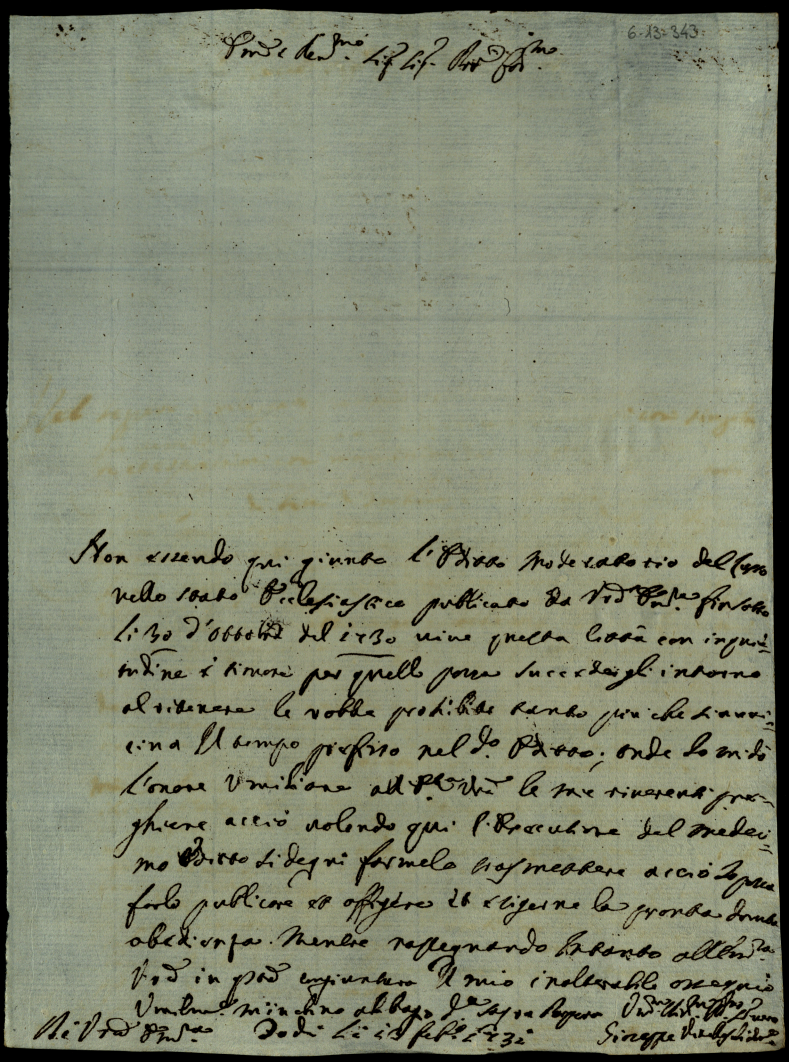 6-13-343
Em.o e Rev.mo Sig. Sig.
Non essendo qui giunto l'Editto Moderatorio del Lusso
nello stato Ecclesiastico publicato da V.ra Em.za fin sotto
li 30 d'ottobre del 1730 vive questa Città con inquie=
tudine e timore per quello possa succedergli intorno
al ritenere le robbe proibite tanto più che s'avvi=
cina il tempo prefisso nel d.o Editto; onde Io mi dò
l'onore Umiliare all'E. V.ra le mie riverenti pre=
ghiere acciò volendo qui l'Esecutione del medesi=
mo Editto si degni farmelo trasmettere acciò Io possa
farlo publicare et affigere et esigerne la pronta dovuta
obedienza. Mentre rassegnando Intanto all'Em.za
V.ra in q.ta congiuntura Il mio inalterabile ossequio
Umilm.e m'inchino al bacio d.a Sagra Porpora
Di V.ra Em.za Todi li feb.o 1731
Giuseppe